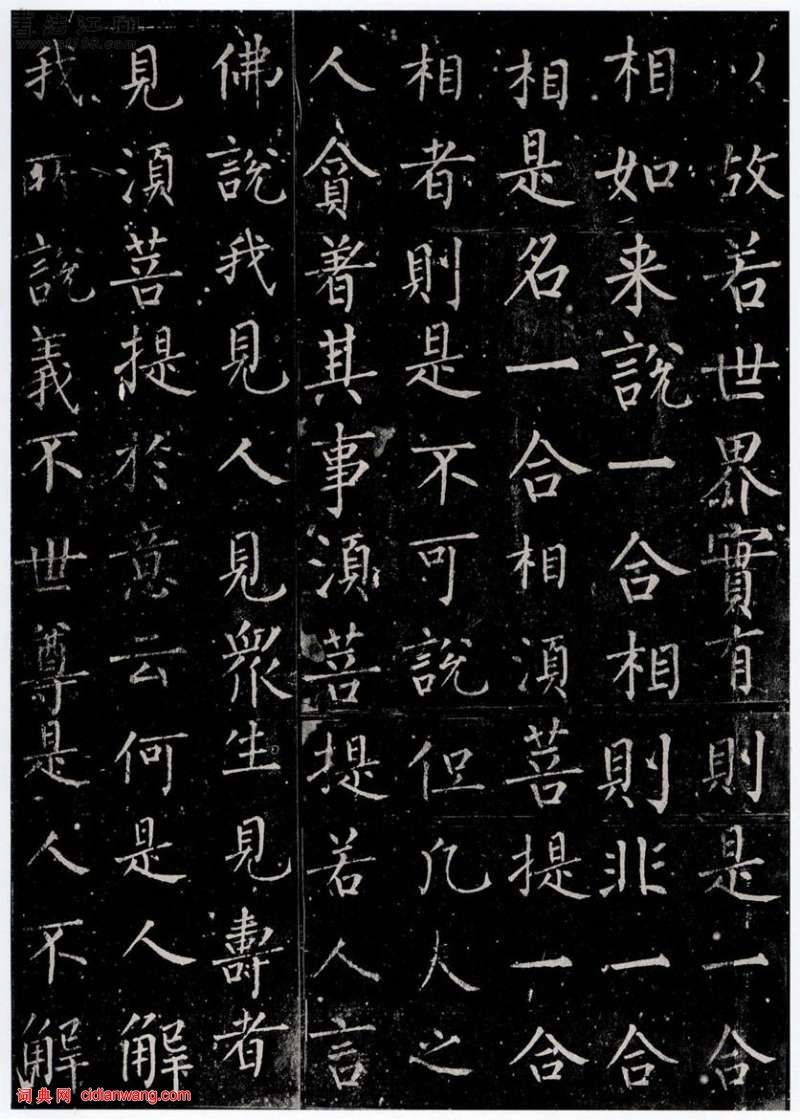 以故若世界實有則是一合
相如来說一合相則非一合
相是名一合相須菩提一合
相者則是不可說但凡人之
人貪著其事須菩提若人言
佛說我見人見衆生見壽者
見須菩提於意云何是人解
我所說義不世尊是人不解
词典网 cidianwang.com